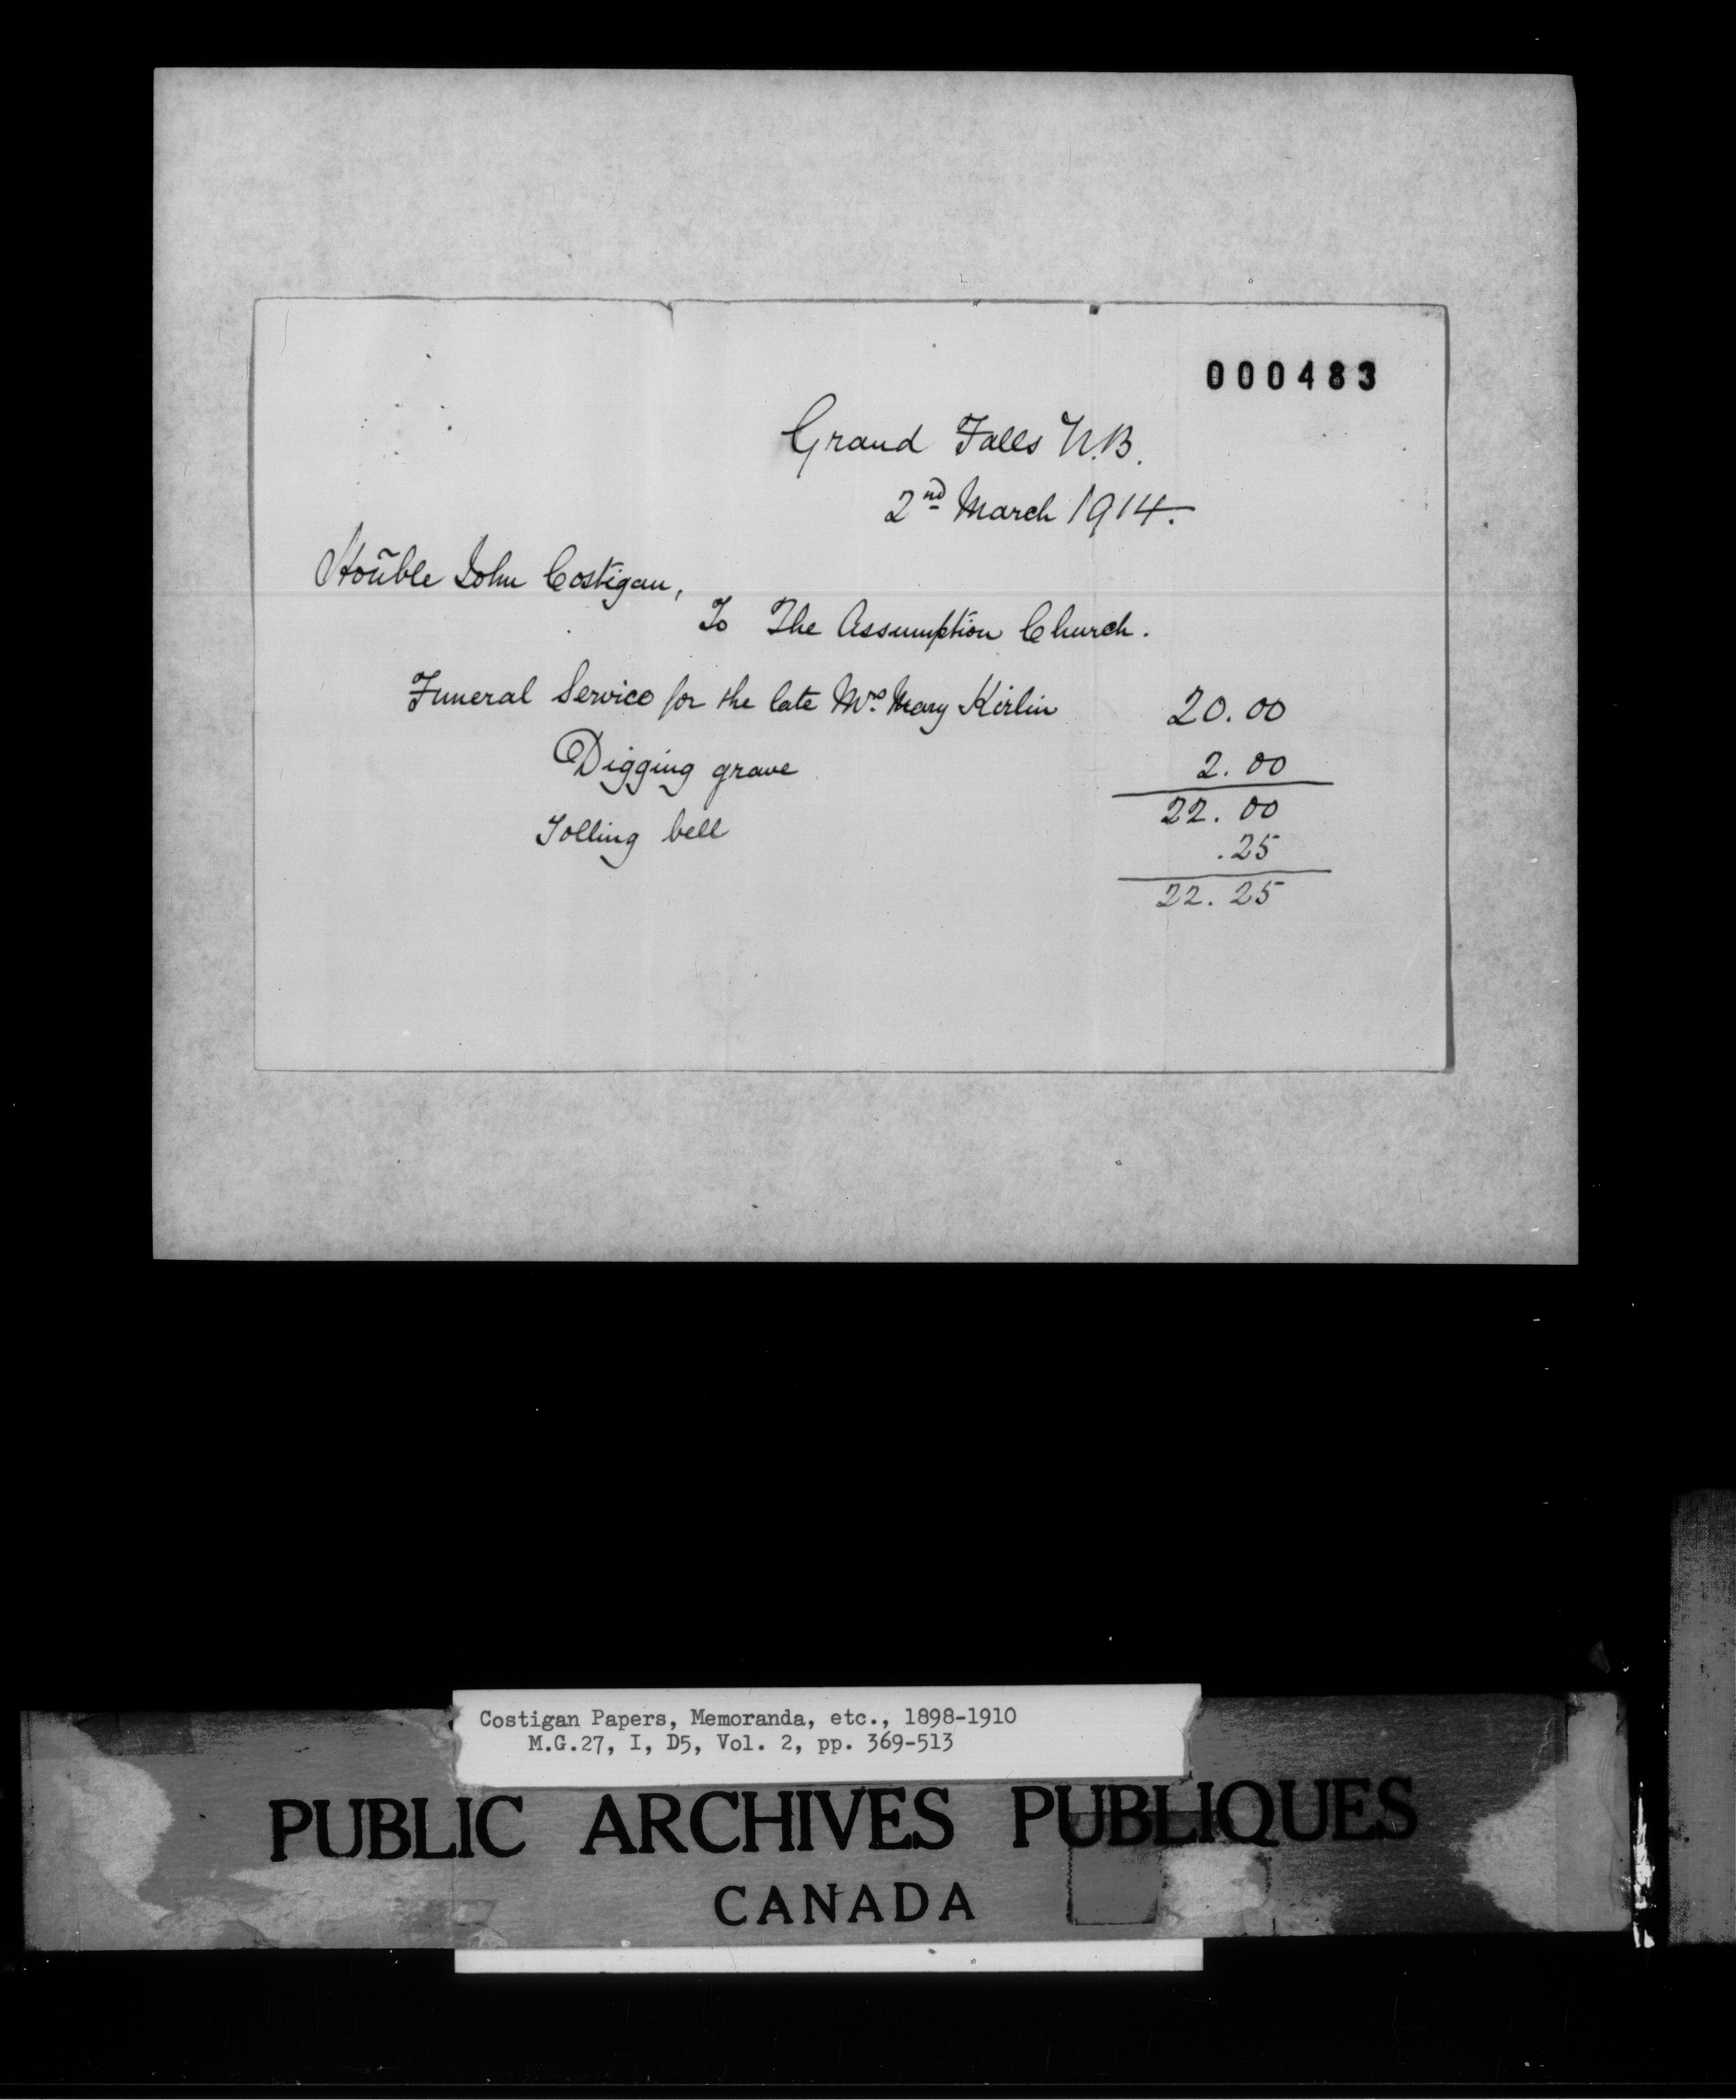 000483
Grand Falls N.B.
2nd March 1914.
Hoñble John Costigan,
To The Assumption Church.
Funeral Service for the late Mrs. Mary Kirlin 20.00
Digging grave 2.00
22.00
Tolling bell .25
22.25
Costigan Papers, Memoranda, etc., 1898-1910
M.G.27, I, D5, Vol. 2, pp. 369-513
PUBLIC ARCHIVES PUBLIQUES
CANADA